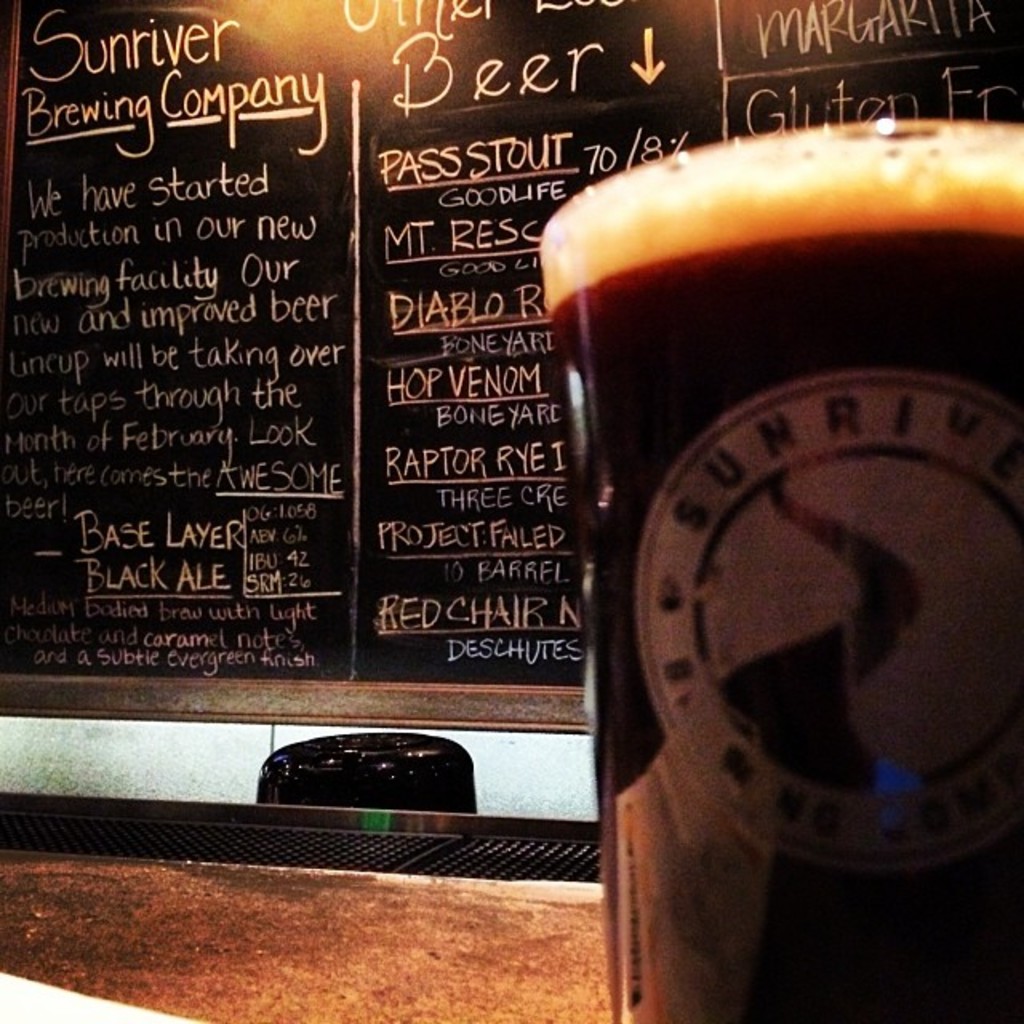 Sunriver
Brewing Company
We have started
production in our new
brewing facility Our
new and improved beer
lineup will be taking over
our taps through the
month of February. Look
out, here comes the AWESOME
beer!
BASE LAYER
BLACK ALE
OG: 1.058
ABV: 6%
IBU: 42
SRM: 26
Medium bodied brew with light
chocolate and caramel notes,
and a subtle evergreen finish
Other
Beer ↓
PASS STOUT 70/8%
GOODLIFE
MT. RESC
GOOD LI
DIABLO R
BONEYARD
HOP VENOM
BONEYARD
RAPTOR RYE I
THREE CRE
PROJECT: FAILED
10 BARREL
RED CHAIR N
DESCHUTES
MARGARITA
Gluten Fr
SUNRIVE